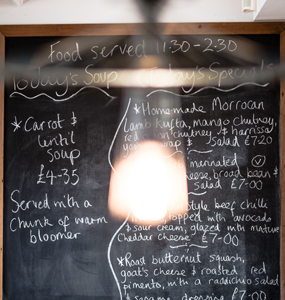 Food served 11:30-2:30
Today's Soup
Today's Specials
*Carrot &
lentil
Soup
£4-35
Served with a
Chunk of warm
bloomer
*Homemade Morrocan
lamb kufta, mango chutney,
red chutney & harissa
& Salad £7-20
marinated (V)
cheese, broad bean &
salad £7-00
style beef chilli
topped with avocado
& sour cream, glazed with mature
Cheddar cheese £7-00
*Roast butternut squash,
goat's cheese & roasted red
pimento, with a raddichio salad
& dressing £7-00